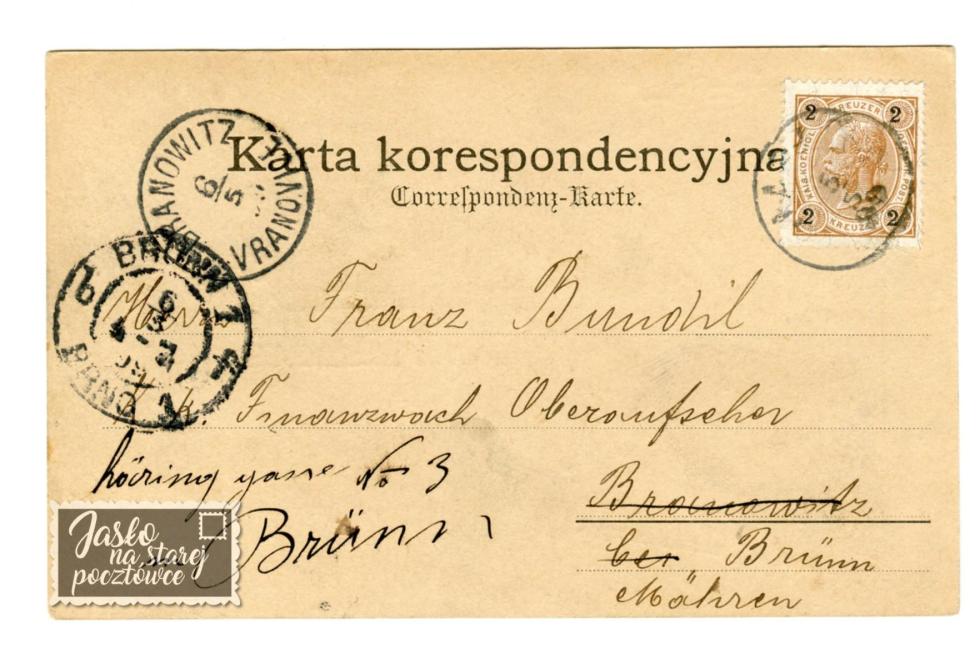 Karta korespondencyjna
Correspondenz-Karte.
2 KREUZER 2
2 KREUZER 2
BRANOWITZ
6/5
VRANOVICE
BRÜNN 1
BRNO 1
Herrn Franz Bundil
k. k. Finanzwach Oberaufseher
gasse No 3
Branowitz
Brünn
bei Brünn
Mähren
Jasło
na starej
pocztówce